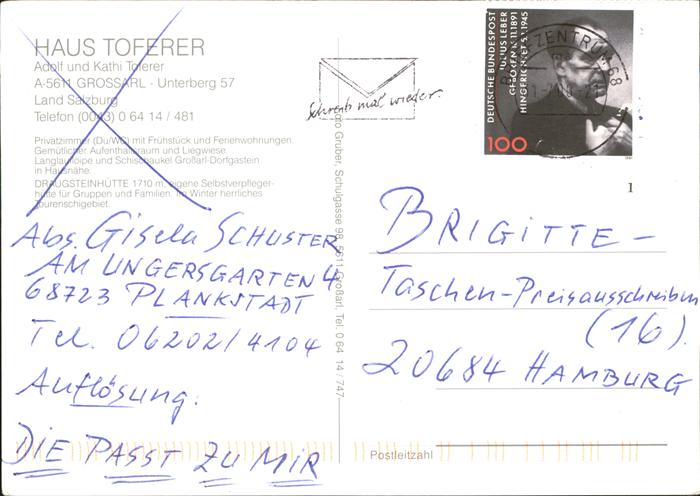 HAUS TOFERER
Adolf und Kathi Toferer
A-5611 GROSSARL · Unterberg 57
Land Salzburg
Telefon (0043) 0 64 14 / 481
Privatzimmer (Du/WC) mit Frühstück und Ferienwohnungen.
Gemütlicher Aufenthaltsraum und Liegwiese.
Langlaufloipe und Schischaukel Großarl-Dorfgastein
in Hausnähe.
DRAUGSTEINHÜTTE 1710 m, eigene Selbstverpfleger-
hütte für Gruppen und Familien. Im Winter herrliches
Tourenschigebiet.
Abs. Gisela SCHUSTER
AM UNGERSGARTEN 4
68723 PLANKSTADT
Tel. 06202/4104
Auflösung:
DIE PASST ZU MIR
Foto Gruber, Schulgasse 98, 5611 Großarl, Tel. 0 64 14 / 747
Schreib mal wieder.
DEUTSCHE BUNDESPOST
JULIUS LEBER
GEBOREN 16.11.1891
HINGERICHTET 5.1.1945
100
1
BRIGITTE -
Taschen-Preisausschreiben
(16).
20684 HAMBURG
Postleitzahl